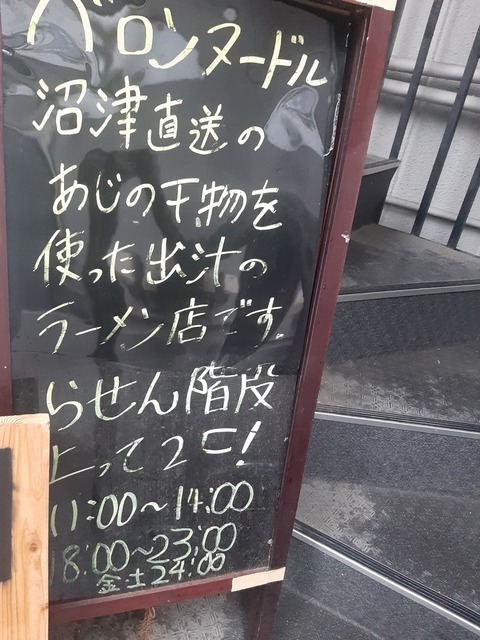 バロンヌードル
沼津直送の
あじの干物を
使った出汁の
ラーメン店です。
らせん階段
上って2F!
11:00〜14:00
18:00〜23:00
金土24:00